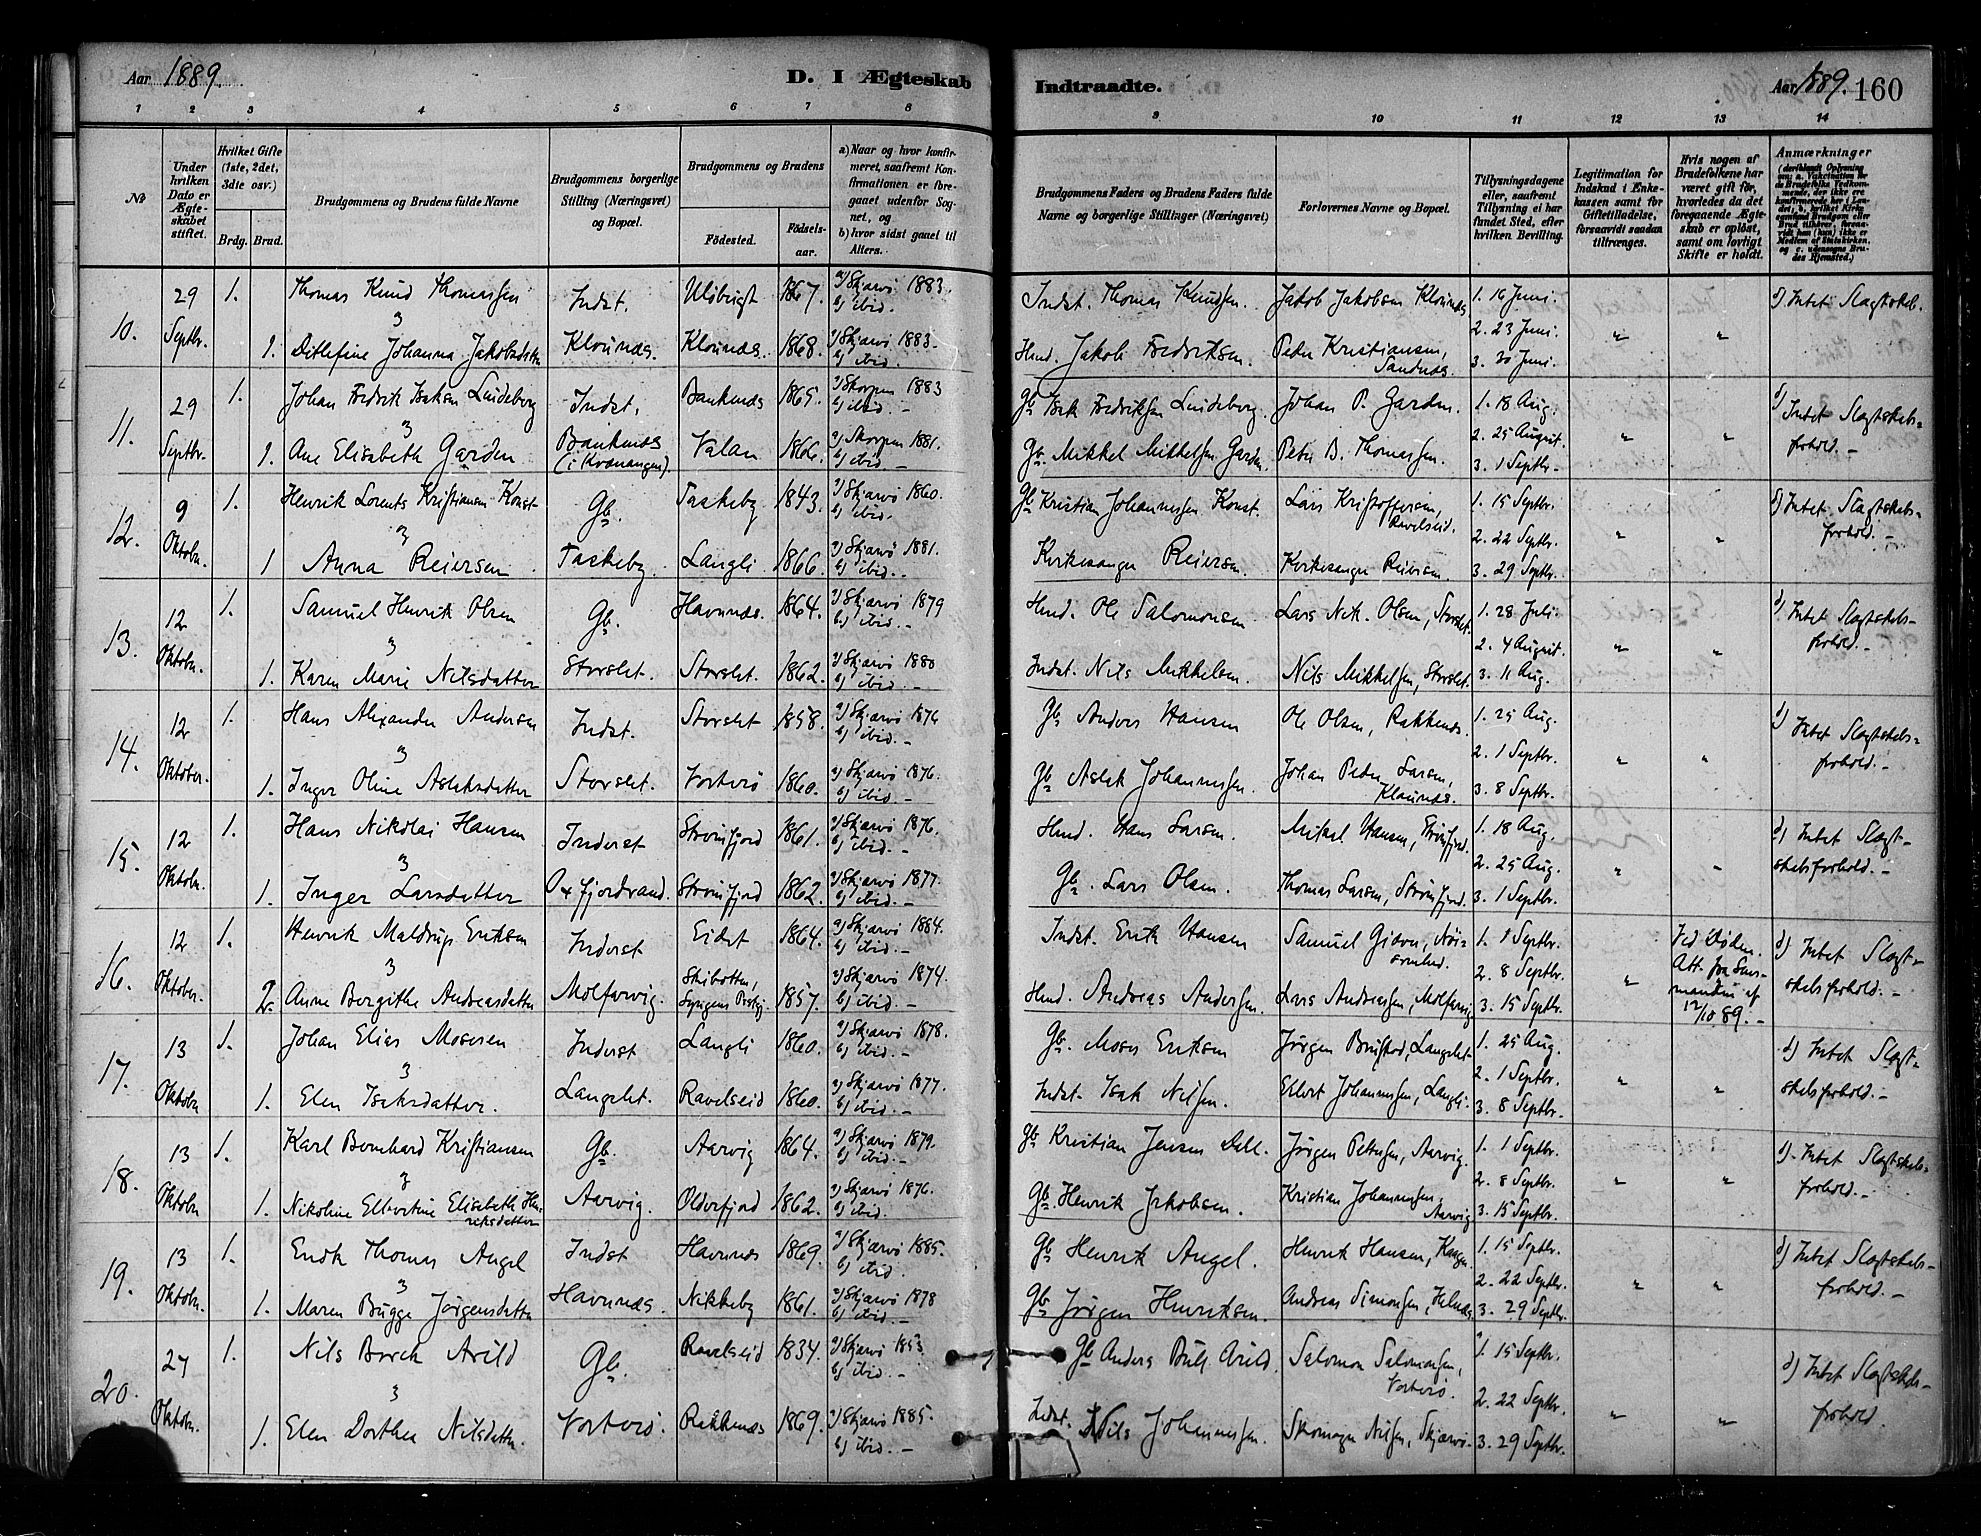 Aar 1889. D. I Ægteskab
Indtraadte. Aar 1889. 160
1 2 3 4 5 6 7 8
9 10 11 12 13 14
No
Under hvilken Dato er Ægteskabet stiftet.
Hvilket Gifte (1ste, 2det, 3die osv.)
Brdg. Brud.
Brudgommens og Brudens fulde Navne
Brudgommens borgerlige Stilling (Næringsvei) og Bopæl.
Brudgommens og Brudens
Fødested. Fødsels-aar.
a) Naar og hvor konfirmeret, saafremt Konfirmationen er foregaaet udenfor Sognet, og
b) hvor sidst gaaet til Alters.
Brudgommens Faders og Brudens Faders fulde Navne og borgerlige Stillinger (Næringsvei)
Forlovernes Navne og Bopæl.
Tillysningsdagene eller, saafremt Tillysning ei har fundet Sted, efter hvilken Bevilling.
Legitimation for Indskud i Enkekassen samt for Giftetilladelse, forsaavidt saadan tiltrænges.
Hvis nogen af Brudefolkene har været gift før, hvorledes da det foregaaende Ægteskab er opløst, samt om lovligt Skifte er holdt.
Anmærkninger
10. 29 Septbr. 1. Thomas Knud Thomassen Indst. Ulöbugt 1867. a) Skjærvö 1883. b) ibid.
Indst. Thomas Knudsen. Jakob Jakobsen Klöunæs 1. 16 Juni. d) Intet Slagtskb.
1. Ditlefine Johanna Jakobsdatter Klöunæs. Klöunæs. 1868. a) Skjærvö 1883. b) ibid.
Hmd. Jakob Fredriksen. Peder Kristiansen, Sandnæs. 2. 23 Juni. 3. 30 Juni. " "
11. 29 Septbr. 1. Johan Fredrik Isaksen Lindeborg Indst. Bankenæs 1865. a) Skorpen 1883 b) ibid. –
Gb. Isak Fredriksen Lindeborg. Johan P. Garden. 1. 18 Aug. d) Intet Slagtskabs=
1. Ane Elisabeth Garden Bankenæs (i Kvænangen). Valan 1866. a) Skorpen 1881. b) ibid. –
Gb. Mikkel Mikkelsen Garden. Peder B. Thomassen. 2. 25 August. 3. 1 Septbr. " " forhold. –
12. 9 Oktobr. 1. Henrik Lorents Kristiansen Konst Gb. Taskeby 1843. a) Skjærvö 1860. b) ibid.
Gb. Kristian Johannesen Konst. Lars Kristoffersen, Ravelseid. 1. 15 Septbr. d) Intet Slagtskabs=
1 Anna Reiersen Taskeby. Langli 1866. a) Skjærvö 1881. b) ibid. –
Kirkesanger Reiersen. Kirkesanger Reiersen. 2. 22 Septbr. 3. 29 Septbr. " " forhold. –
13. 12 Oktobr. 1. Samuel Henrik Olsen Gb. Havnnæs. 1864. a) Skjærvö 1879 b) ibid. –
Hmd. Ole Salomonsen Lars Nik. Olsen, Storslet. 1. 28 Juli. d) Intet Slagtskabs-
1. Karen Marie Nilsdatter Storslet. Storslet. 1862. a) Skjærvö 1880 b) ibid. –
Indst. Nils Mikkelsen. Nils Mikkelsen, Storslet. 2. 4 August. 3. 11 Aug. " " forhold. –
14. 12 Oktober. 1. Hans Alexander Andersen Indst. Storslet 1858. a) Skjærvö 1876 b) ibid. –
Gb. Anders Hansen Ole Olsen, Rakkenæs. 1. 25 Aug. d) Intet Slagtskabs=
1. Inger Oline Aslaksdatter Storslet. Vorterö 1860. a) Skjærvö 1876. b) ibid –
Gb. Aslak Johannessen. Johan Peder Larsen, Klöunæs. 2. 1 Septbr. 3. 8 Septbr. " " forhold. –
15. 12 Oktobr. 1. Hans Nikolai Hansen Inderst Strömfjord 1861. a) Skjærvö 1876. b) ibid. –
Hmd. Hans Larsen. Mikael Hansen, Strömfjord. 1. 18 Aug. d) Intet Slagt-
1. Inger Larsdatter Oxfjordvand. Strömfjord 1862. a) Skjærvö 1877. b) ibid. –
Gb. Lars Olsen. Thomas Larsen, Strömfjord. 2. 25 Aug. 3. 1 Septbr. " " skabsforhold. –
16. 12 Oktober. 1. Henrik Maldrup Eriksen Inderst Eidet 1864. a) Skjærvö 1884. b) ibid. –
Indst. Erik Hansen Samuel Giæver, 1. 1 Septbr. Ved Döden. Att. fra d) Intet Slagt=
2. Anne Bergithe Andreasdatter Molfarvig. Skibotten, Lyngens Prstgj. 1857. a) Skjærvö 1874. b) ibid. –
Hmd. Andreas Andersen. Lars Andreassen, Molfarvig 2. 8 Septbr. 3. 15 Septbr. " 12/10 89. – skabsforhold. –
17. 13 Oktobr 1. Johan Elias Mosesen Inderst Langli 1860. a) Skjærvö 1878. b) ibid. –
Gb. Moses Eriksen Jörgen Brustad, Langslet 1. 25 Aug. d) Intet Slagt=
1. Elen Isaksdatter. Langslet. Ravelseid 1860. a) Skjærvö 1877. b) ibid. –
Indst. Isak Nilsen. Elbert Johannessen, Langli. 2. 1 Septbr. 3. 8 Septbr. " " skabsforhold. –
18. 13 Oktobr 1. Karl Bernhard Kristiansen Gb. Aarvig 1864. a) Skjærvö 1879. b) ibid. –
Gb. Kristian Jensen Dall. Jörgen Petersen, Aarvig. 1. 1 Septbr. d) Intet Slagtskabs-
1. Nikoline Elbertine Elisabeth Henriksdatter Aarvig. Olderfjord 1862. a) Skjærvö 1876. b) ibid.
Gb. Henrik Jakobsen. Kristian Johannessen, Aarvig 2. 8 Septbr. 3. 15 Septbr. " " forhold. –
19. 13 Oktobr. 1. Endk Thomas Angel Indst Havnnæs 1869. a) Skjærvö 1885. b) ibid.
Gb. Henrik Angel. Henrik Hansen, Kaagen. 1. 15 Septbr. d) Intet Slagtskabs-
1. Maren Bugge Jörgensdatter Havnnæs. Nikkeby 1861. a) Skjærvö 1878 b) ibid. –
Gb. Jörgen Henriksen. Andreas Simonsen, Helnæs. 2. 22 Septbr. 3. 29 Septbr. " " forhold. –
20. 27 Oktobr. 1. Nils Borch Arild Gb. Ravelseid 1834. a) Skjærvö 1853 b) ibid. –
Gb. Anders Bull Arild. Salomon Salomonsen, Vorterö. 1. 15 Septbr. d) Intet Slagtskabs-
1. Elen Dorthea Nilsdatter. Vorterö. Rakkenæs 1869. a) Skjærvö 1885. b) ibid. –
Indst. Nils Johannessen. Skomager Nilsen, Skjærvö. 2. 22 Septbr. 3. 29 Septbr. " " forhold.